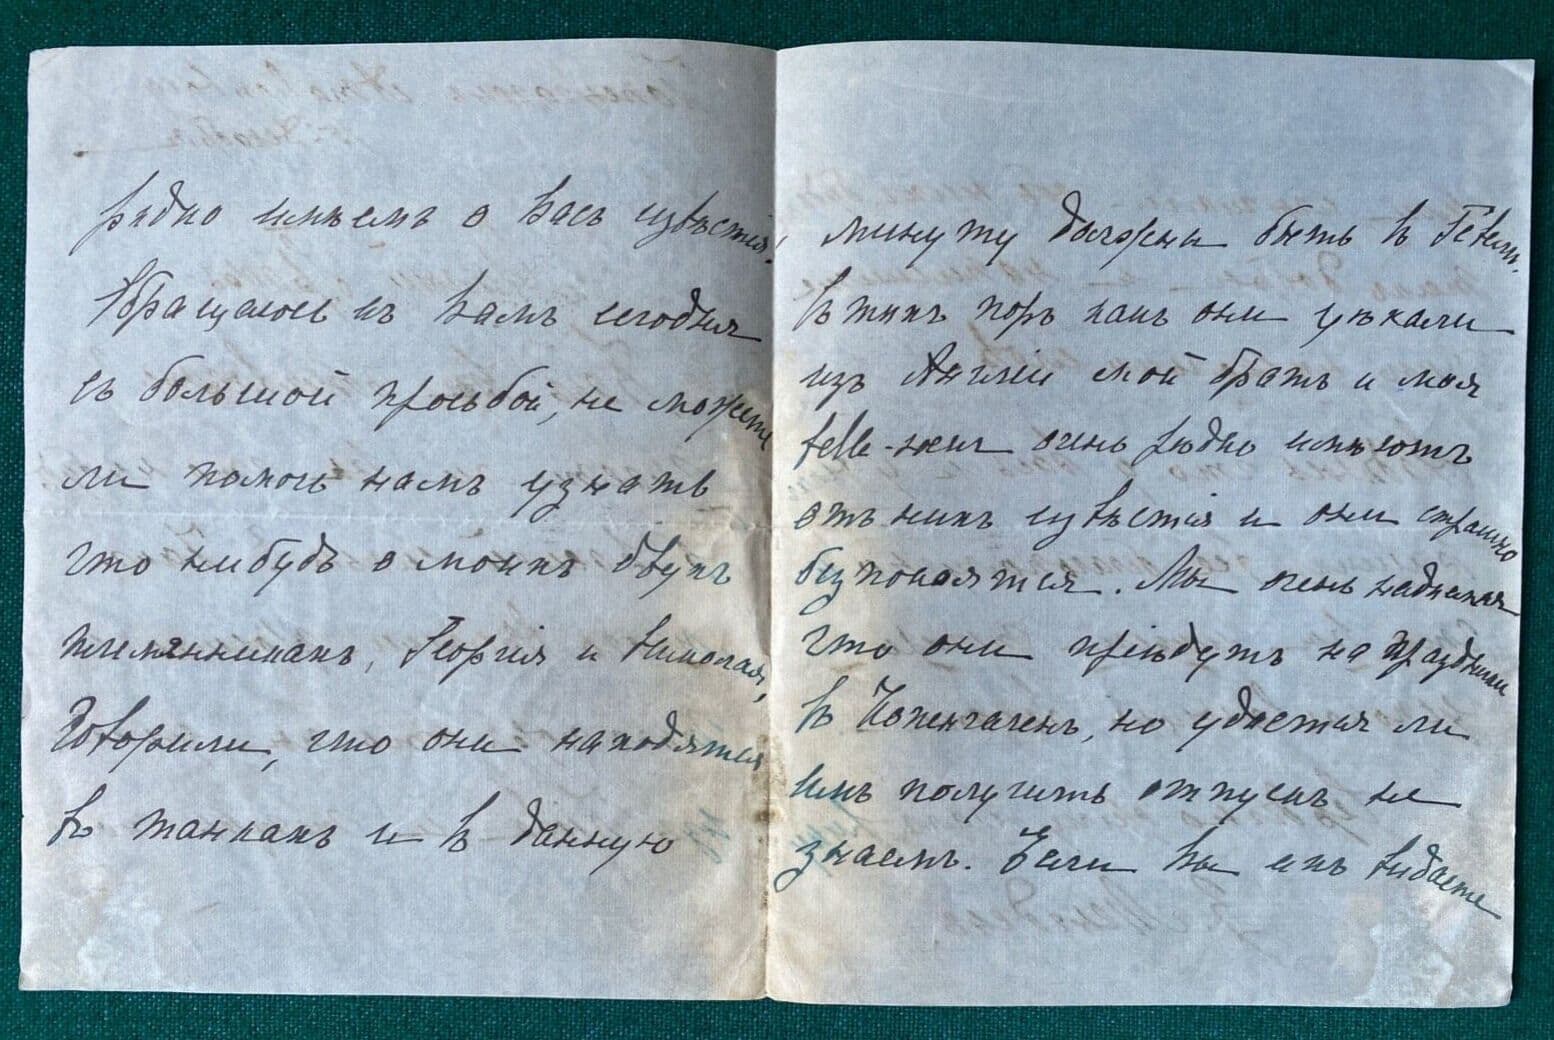 рѣдко имѣемъ о Васъ извѣстія!
Обращаюсь къ Вамъ сегодня
съ большой просьбой, не можете
ли помочь намъ узнать
что нибудь о моихъ двухъ
племянникахъ, Георгія и Николая,
Говорили, что они находятся
въ танкахъ и въ данную
минуту должны быть въ
Съ тѣхъ поръ какъ они уѣхали
изъ Англіи мой братъ и моя
belle-soeur очень рѣдко имѣютъ
отъ нихъ извѣстія и они страшно
безпокоятся. Мы очень надѣемся
что они пріѣдутъ на праздники
въ Копенгагенъ, но удастся ли
имъ получить отпускъ не
знаемъ. Если Вы ихъ видаете